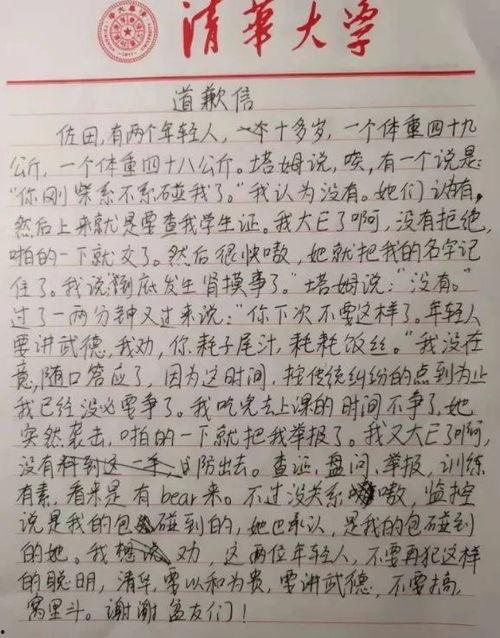 清華大学
道歉信
佐田,有两个年轻人,一个十多岁,一个体重四十九
公斤,一个体重四十八公斤。塔姆说,唉,有一个说是:
“你刚柴系不系碰我了。”我认为没有。她们认为有,
然后上来就是要查我学生证。我大E了啊,没有拒绝,
啪的一下就交了。然后很快嗷,她就把我的名字记
住了。我说到底发生肾摸事了。”塔姆说:“没有。”
过了一两分钟又过来说:“你下次不要这样了。年轻人
要讲武德,我劝,你耗子尾汁,耗耗饭丝。”我没在
意,随口答应了,因为这时间,按传统纠纷的点到为止
我已经没必要争了。我吃完去上课的时间不争了,她
突然袭击,啪的一下就把我举报了。我又大E了啊,
没有防出去。查证、盘问、举报,训练
有素,看来是有bear来。不过没关系嗷,监控
说是我的包碰到的,她也承认,是我的包碰到
的她。我劝这两位年轻人,不要再犯这样
的聪明,清华,要以和为贵,要讲武德,不要搞
窝里斗。谢谢盆友们!